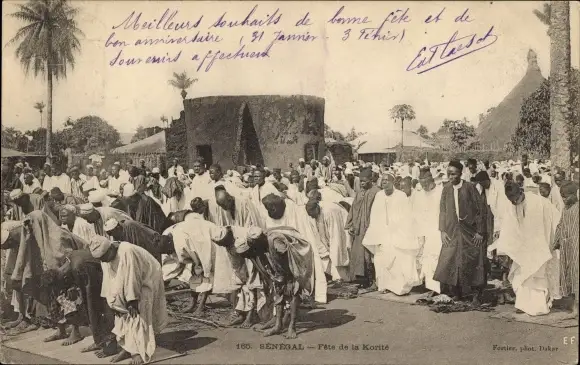 Meilleurs souhaits de bonne fête et de
bon anniversaire (31 Janvier - 3 Février)
Souvenirs affectueux
165. SÉNÉGAL — Fête de la Korité
Fortier, phot. Dakar
E F